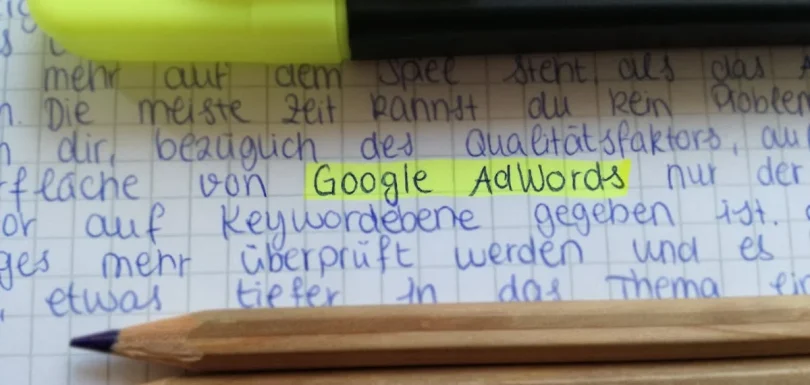 mehr auf dem Spel steht, als das
Die meiste Zeit kannst du kein
dir, bezüglich des Qualitätsfaktors, au
fläche von Google AdWords nur der
or auf Keywordebene gegeben ist.
ges mehr überprüft werden und es
etwas tiefer in das Thema ein